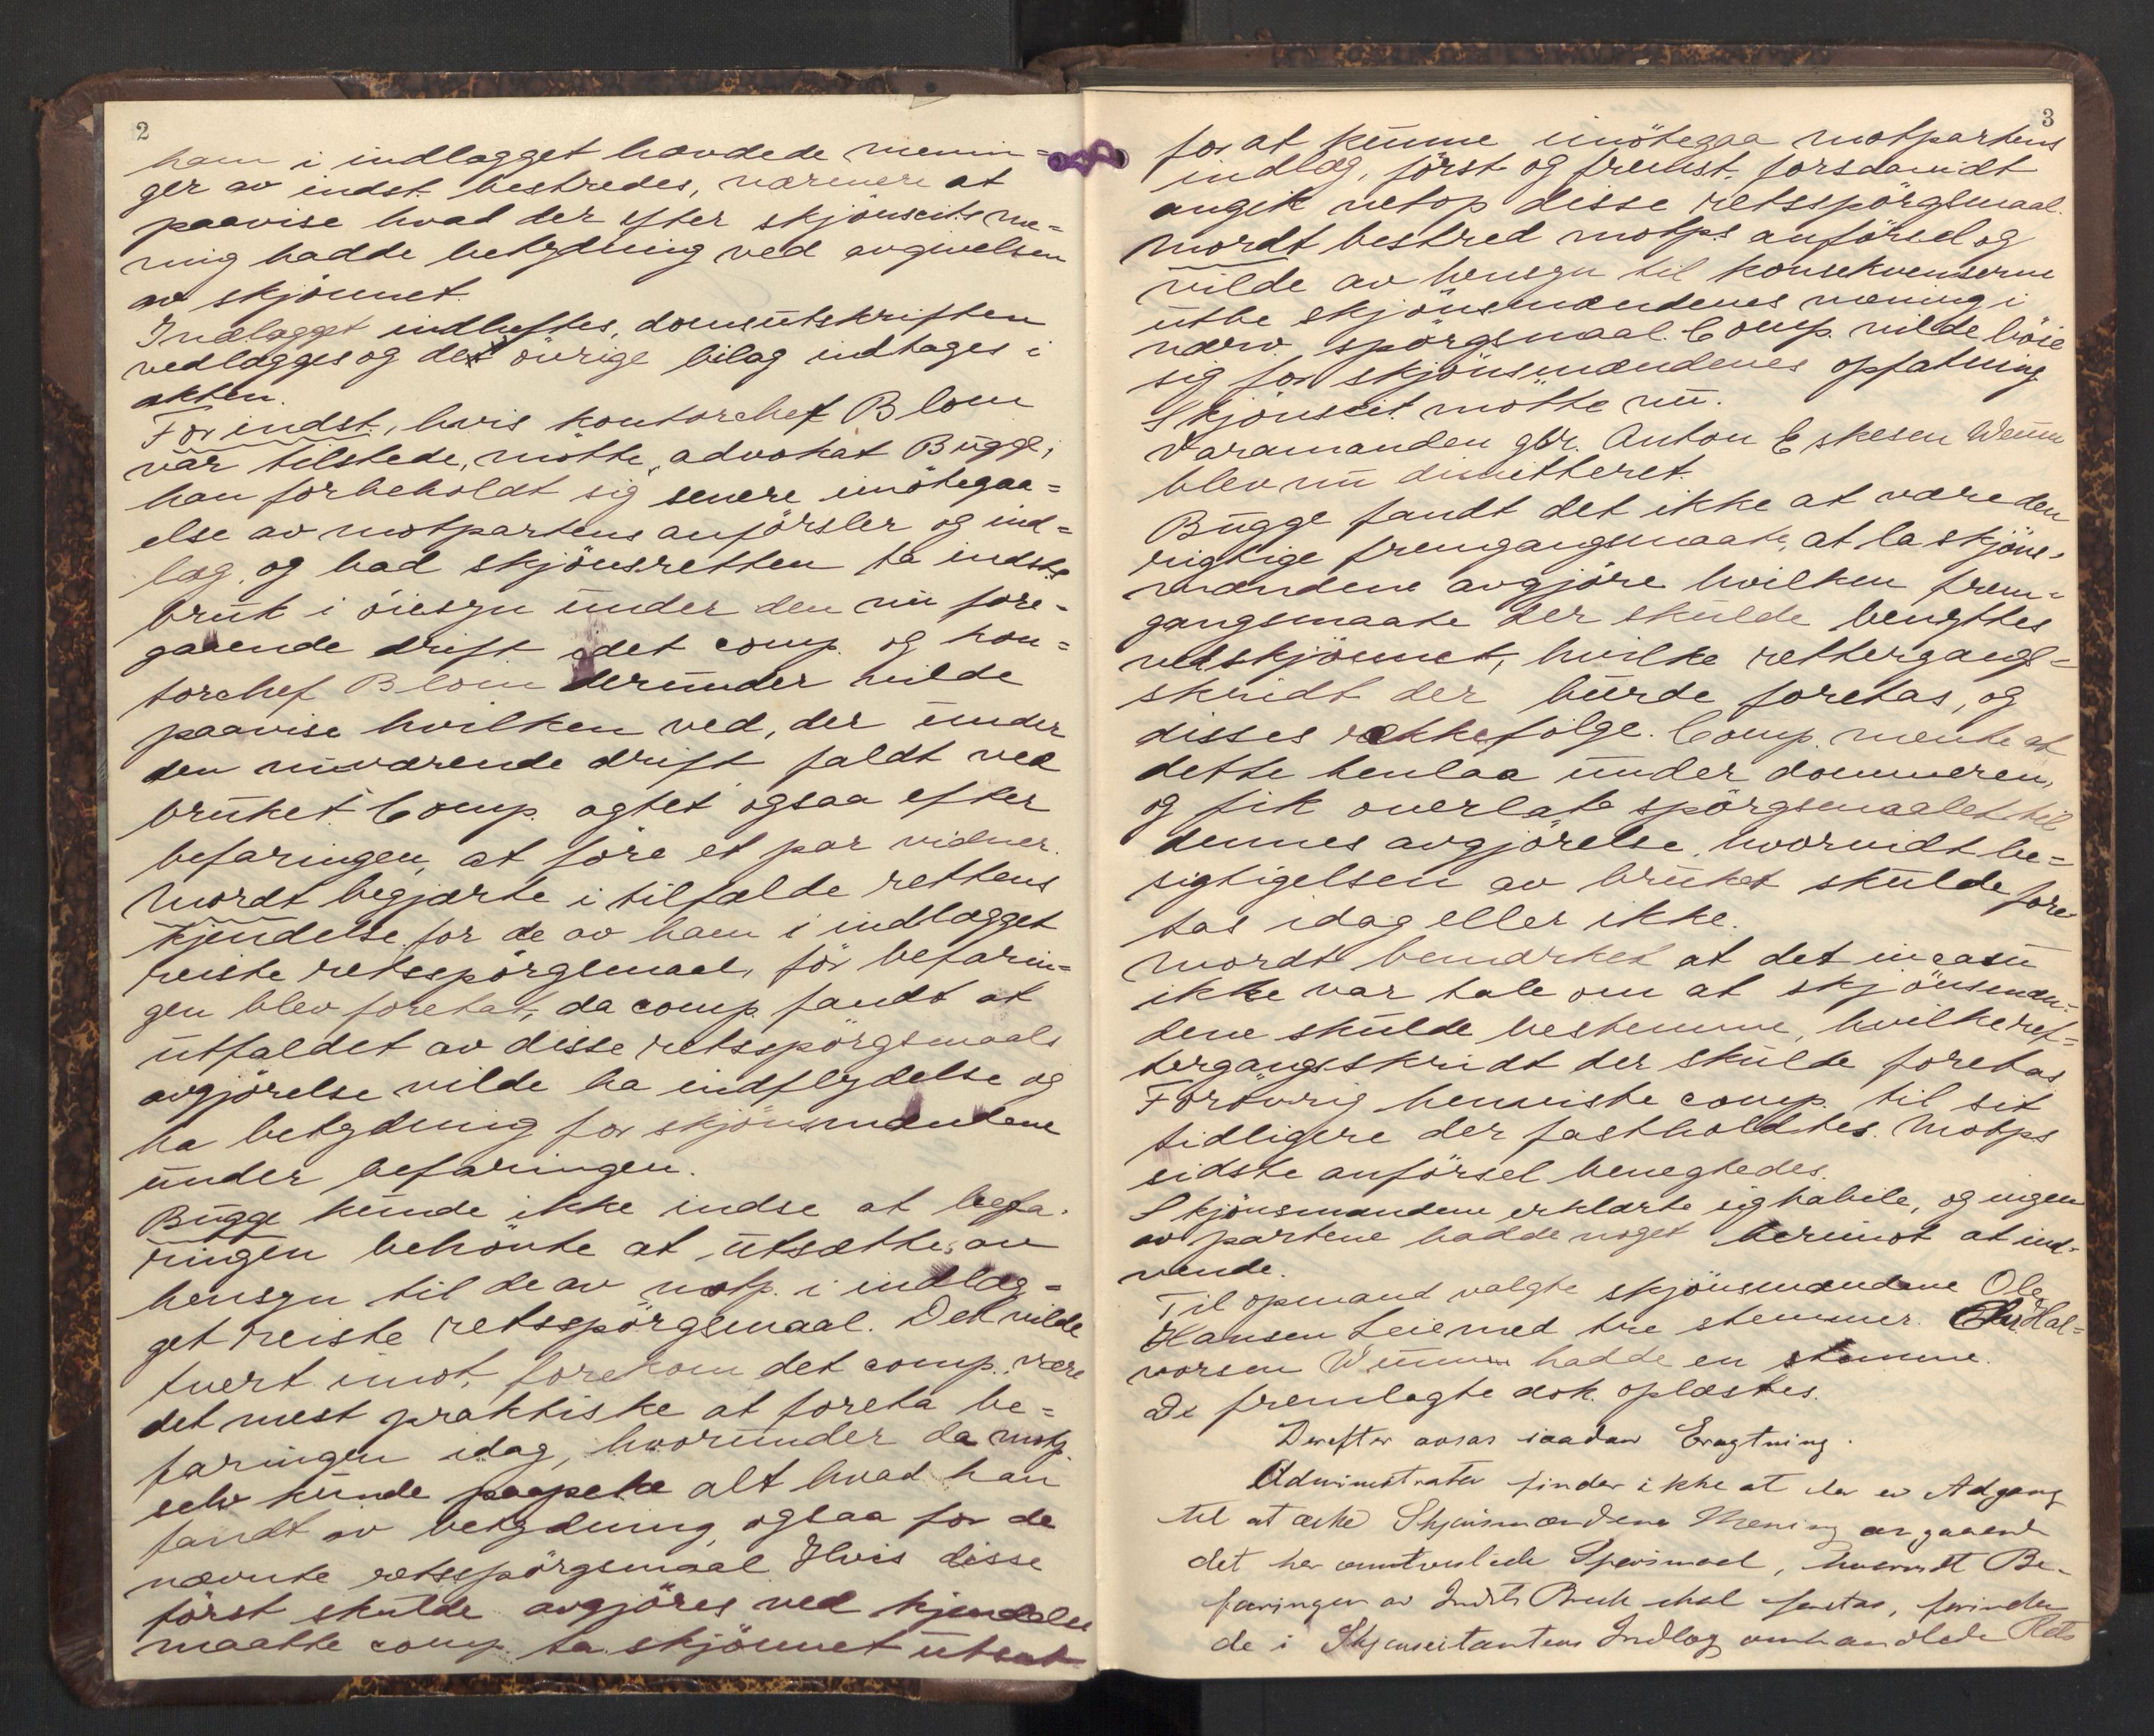 2
ham i indlægget hævdede menin=
ger av indst. bestredes, nærmere at
paavise hvad der efter skjönscits me=
ning hadde betydning ved avgivelsen
av skjönnet.
Indlægget indheftes, domsutskriften
vedlægges og det övrige bilag indtages i
akten.
For indst., hvis kontorchef Blom
var tilstede, mötte advokat Bugge;
han forbeholdt sig senere imötegaa=
else av motpartens anförsler og ind=
læg, og bad skjönsretten ta indsts
bruk i öiesyn under den nu fore=
gaaende drift idet comp. og kon=
torchef Blom derunder vilde
paavise hvilken ved, der under
den nuværende drift faldt ved
bruket. Comp. agtet ogsaa efter
befaringen, at före et par vidner.
Mordt begjærte i tilfælde rettens
kjendelse for de av ham i indlægget
reiste retsspörgsmaal, för befarin=
gen blev foretat, da comp. fandt at
utfaldet av disse retsspörgsmaals
avgjörelse vilde ha indflydelse og
ha betydning for skjönsmændene
under befaringen.
Bugge kunde ikke indse at befa=
ringen behövte at utsættes av
hensyn til de av motp. i indlæg=
get reiste retsspörgsmaal. Det vilde
tvert imot, forekom det comp., være
det mest praktiske at foreta be=
faringen idag, hvorunder da motp.
selv kunde paapeke alt hvad han
fandt av betydning, ogsaa for de
nævnte retsspörgsmaal. Hvis disse
först skulde avgjöres ved kjendelse
maatte comp. ta skjönnet utsat
3
for at kunne imötegaa motpartens
indlæg, först og fremst forsaavidt
angik netop disse retsspörgsmaal.
Mordt bestred motps anförsel og
vilde av hensyn til konsekvenserne
utbe skjönsmændenes mening i
nærv. spörgsmaal. Comp. vilde böie
sig for skjönsmændenes opfatning.
Skjönscit. mötte nu.
Varamanden gbr. Anton Eskesen Wemm
blev nu dimitteret.
Bugge fandt det ikke at være den
rigtige fremgangsmaate, at la skjöns=
mændene avgjöre hvilken frem=
gangsmaate der skulde benyttes
ved skjönnet, hvilke rettergangs=
skridt der burde foretas, og
disses rækkefölge. Comp. mente at
dette henlaa under dommeren,
og fik overlate spörgsmaalet til
dennes avgjörelse, hvorvidt be=
sigtigelsen av bruket skulde fore
tas idag eller ikke.
Mordt bemærket at det in casu
ikke var tale om at skjönsmæn=
dene skulde bestemme, hvilke ret=
tergangsskridt der skulde foretas
Forövrig henviste comp. til sit
tidligere der fastholdtes. Motps
sidste anförsel benegtedes.
Skjönsmændene erklærte sig habile, og ingen
av partene hadde noget herimot at ind=
vende.
Til opmand valgte skjönsmændene Ole
Hansen Leie med tre stemmer. Hal=
vorsen hadde en stemme.
De fremlagte dok. oplæstes.
Derefter avsas saadan Eragtning.
Administrator finder ikke at der er Adgang
til at æske Skjönsmændenes Mening angaaende
det her omtvistede Spörsmaal, hvorvidt Be=
faringen av Indsts Bruk skal foretas, forinden
de i Skjönscitantens Indlæg omhandlede Rets